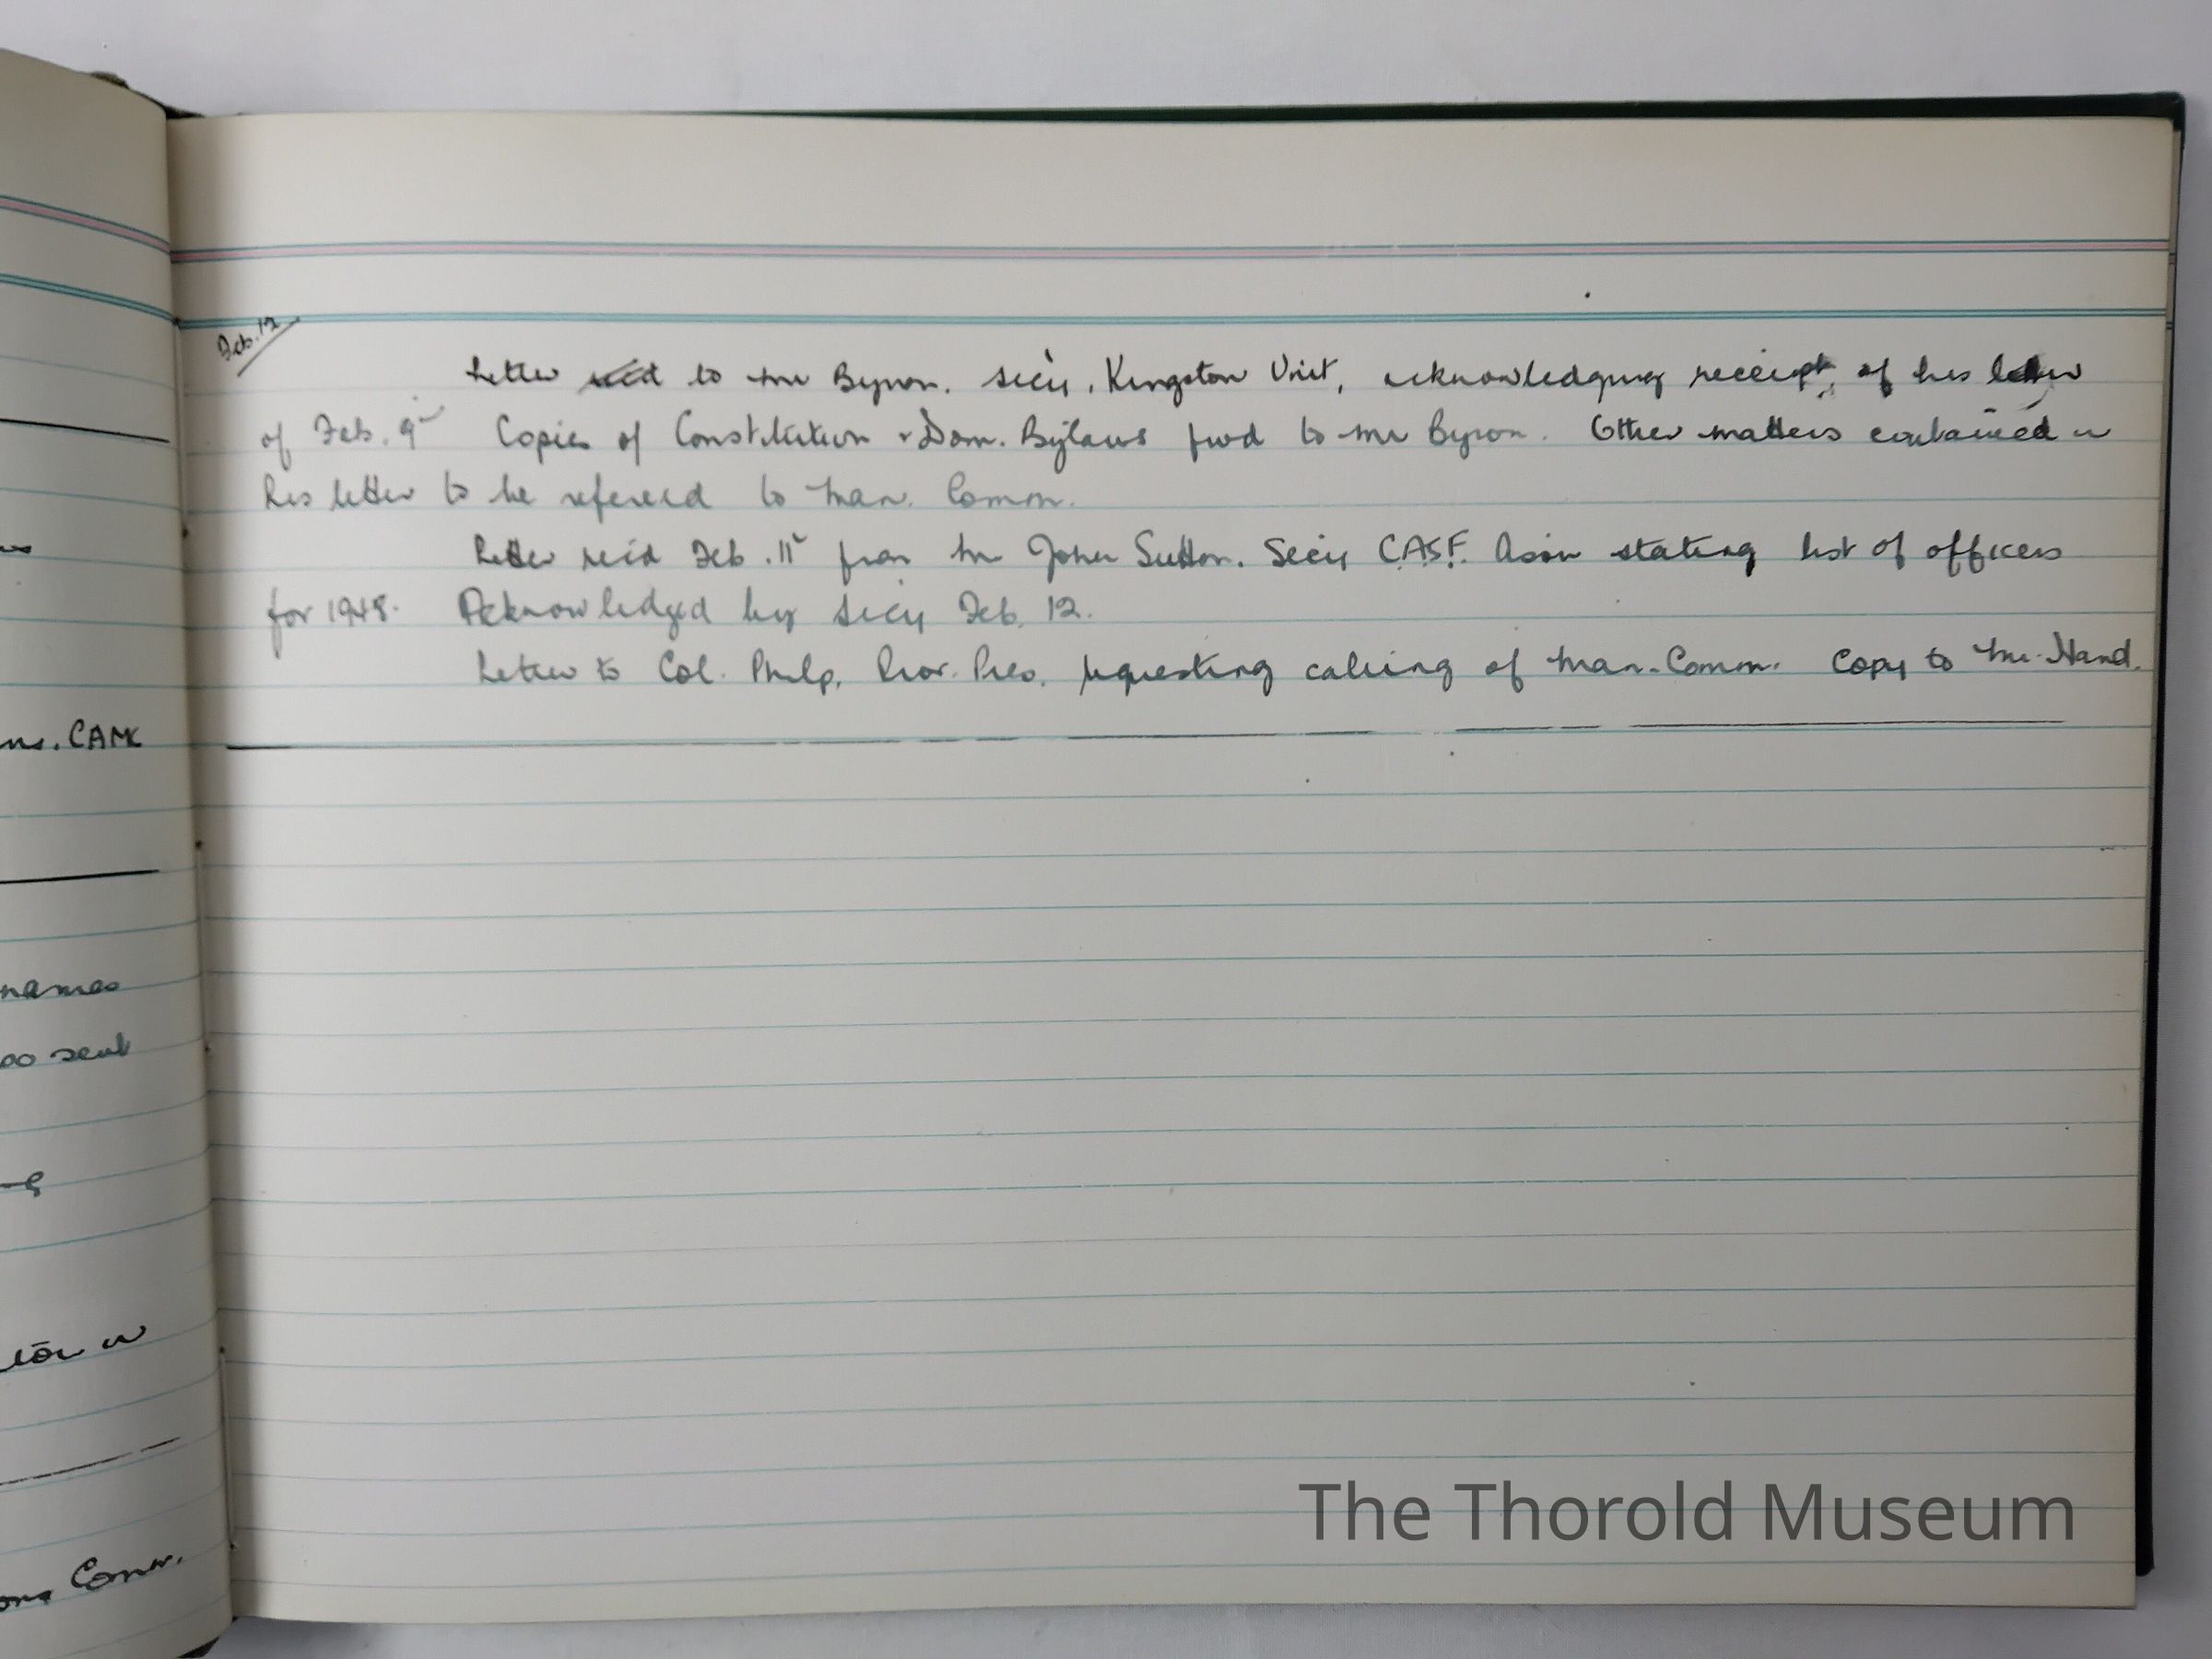 ns. CAMC
names
00 sent
Comm.
Feb. 12
Letter to Mr Byron. Secy, Kingston Unit, acknowledging receipt of his letter
of Feb. 9th Copies of Constitution & Dom. Bylaws fwd to Mr Byron. Other matters contained in
his letter to be refered to Man. Comm.
Letter rec'd Feb. 11th from Mr John Sutton. Secy C.A.S.F. Assn stating list of officers
for 1948. Acknowledged by Secy Feb. 12.
Letter to Col. Philp, Prov. Pres. requesting calling of Man. Comm. Copy to Mr. Hand.
The Thorold Museum